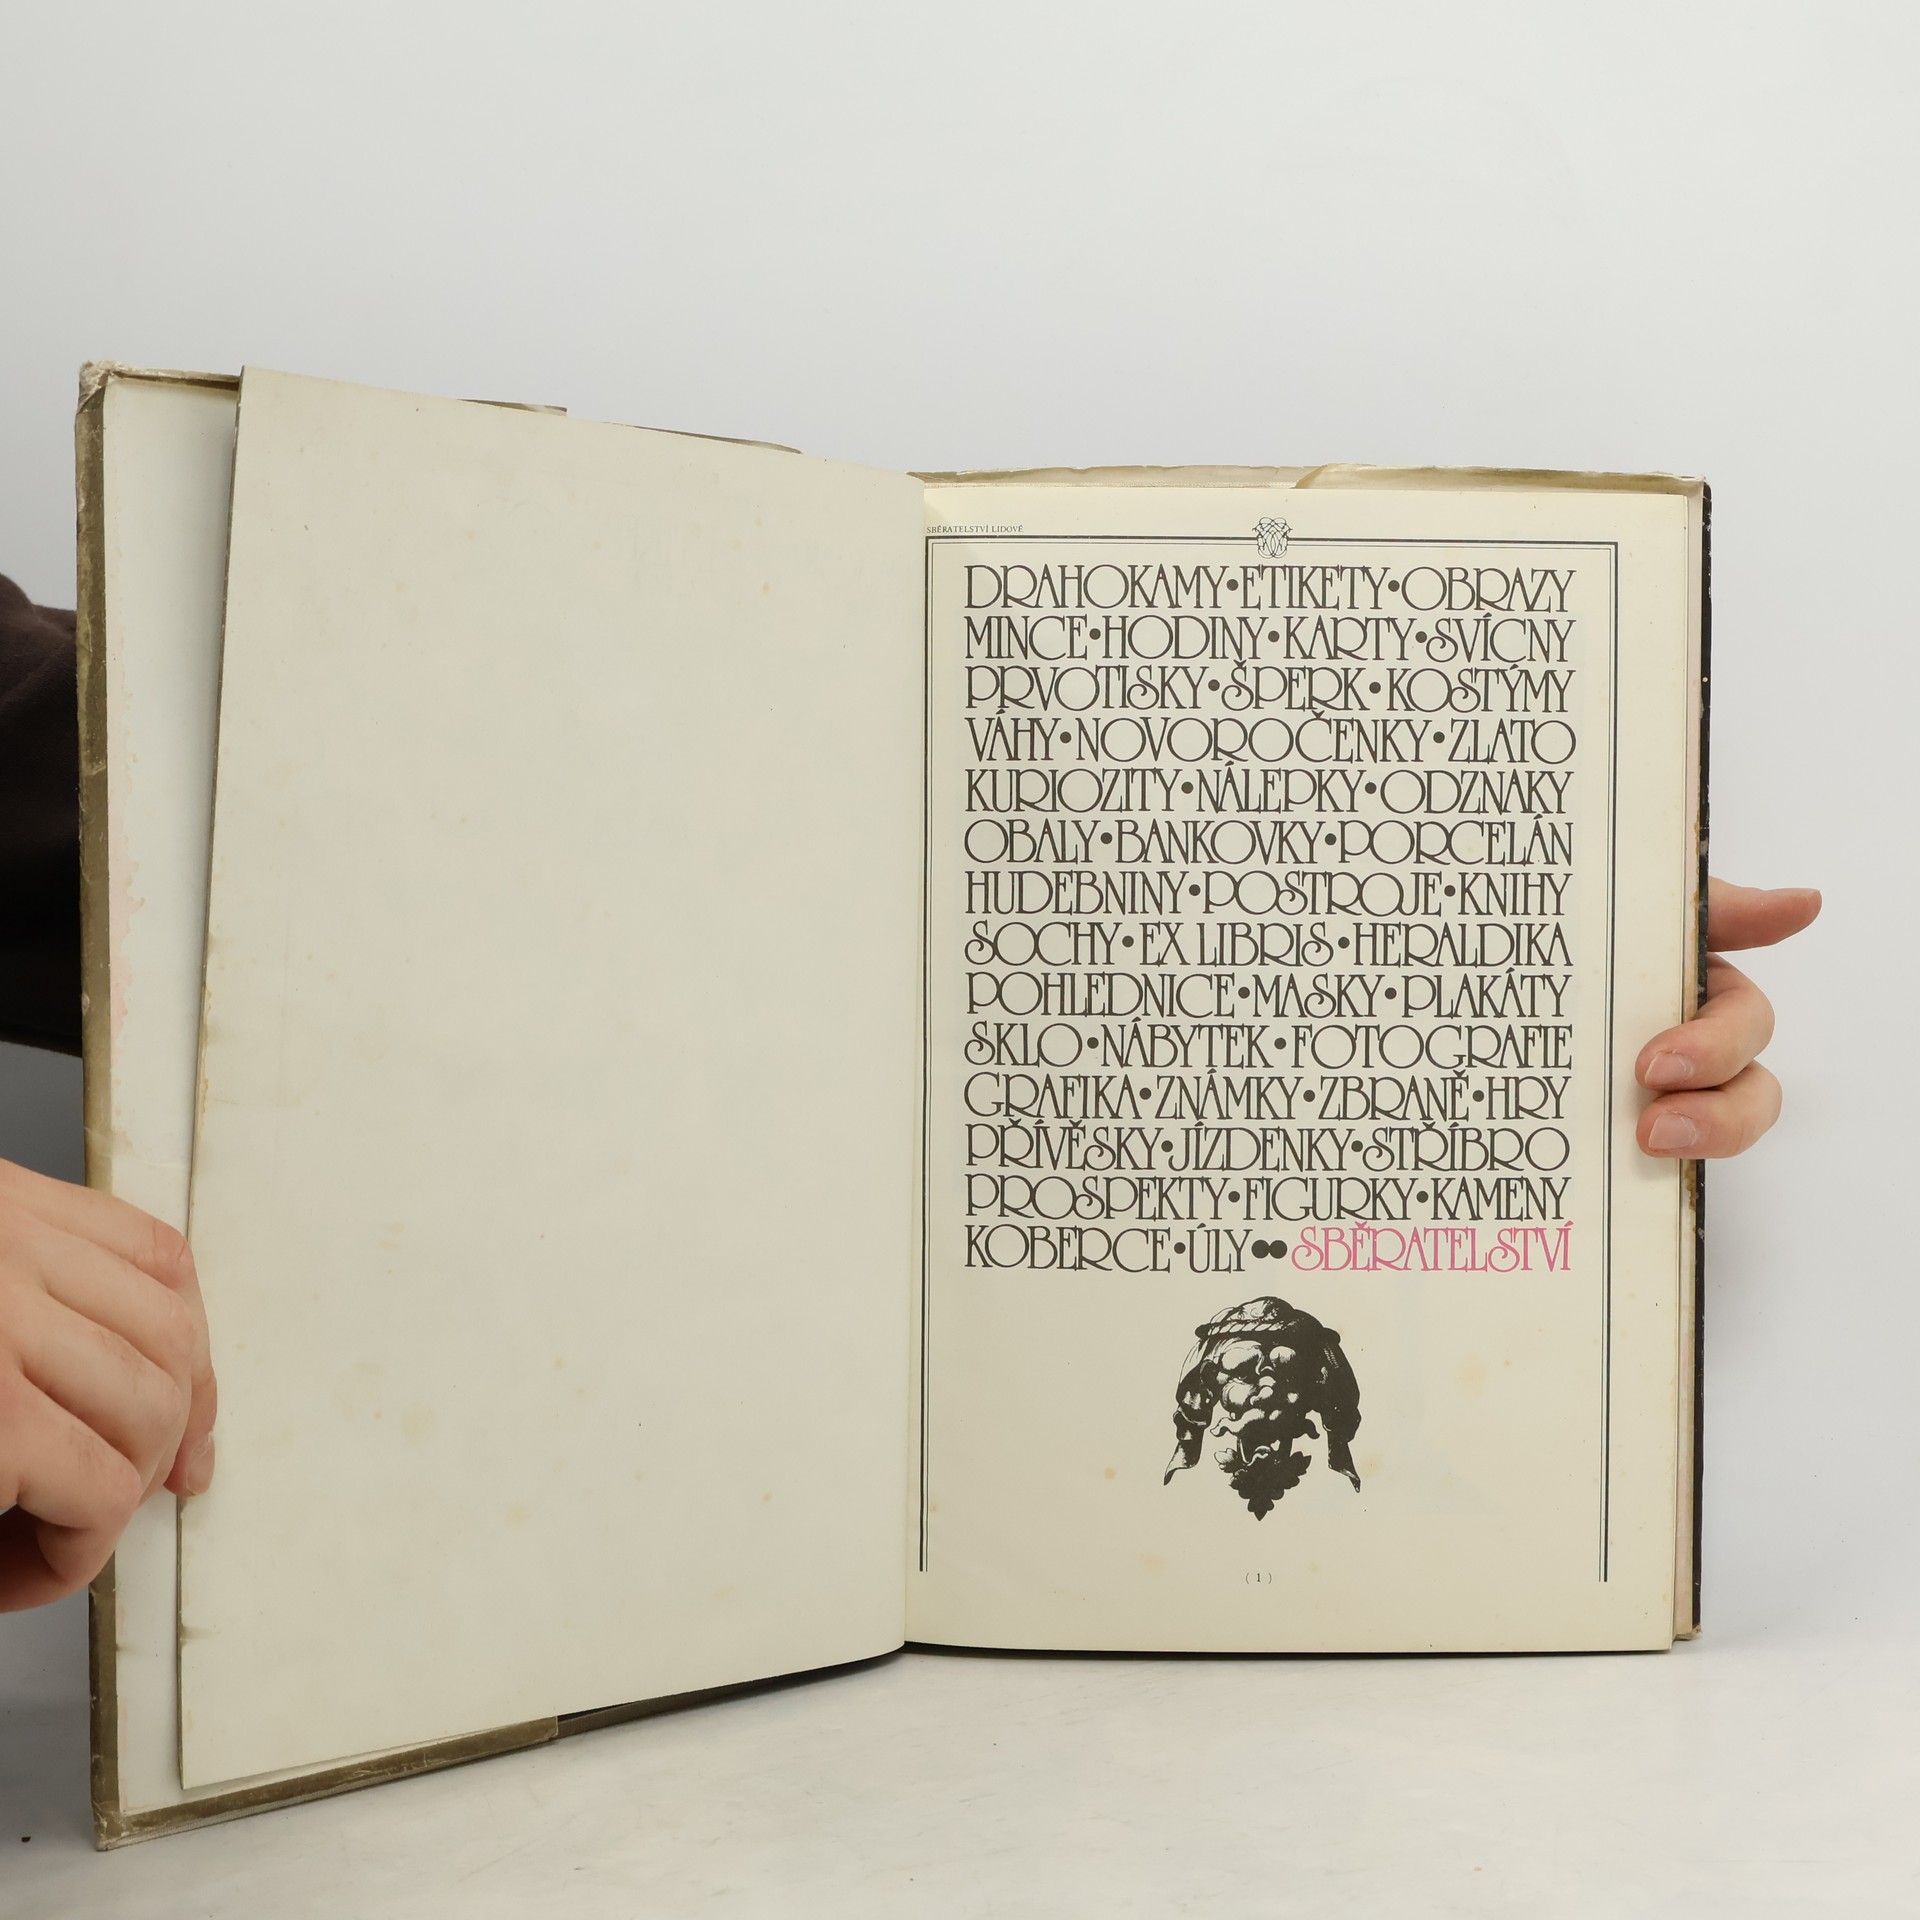 SBĚRATELSTVÍ LIDOVÉ
DRAHOKAMY•ETIKETY•OBRAZY
MINCE•HODINY•KARTY•SVÍCNY
PRVOTISKY•ŠPERK•KOSTÝMY
VÁHY•NOVOROČENKY•ZLATO
KURIOZITY•NÁLEPKY•ODZNAKY
OBALY•BANKOVKY•PORCELÁN
HUDEBNINY•POSTROJE•KNIHY
SOCHY•EX LIBRIS•HERALDIKA
POHLEDNICE•MASKY•PLAKÁTY
SKLO•NÁBYTEK•FOTOGRAFIE
GRAFIKA•ZNÁMKY•ZBRANĚ•HRY
PŘÍVĚSKY•JÍZDENKY•STŘÍBRO
PROSPEKTY•FIGURKY•KAMENY
KOBERCE•ÚLY●●SBĚRATELSTVÍ
( 1 )